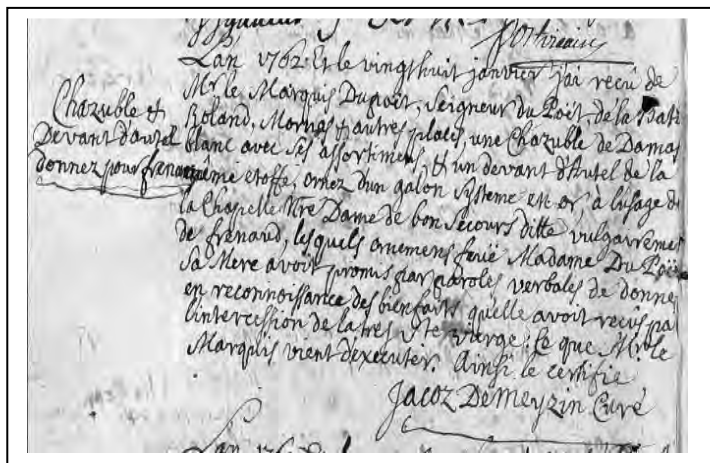 Lan 1762. Et le vingthuit janvier j'ai recû de
Mr. le Marquis Dupoët, Seigneur du Poët, de la Bati
Roland, Mornas & autres places, une Chazuble de Damas
blanc avec ses assortimens, & un devant d'Autel de la
même etoffe, ornez d'un galon sisteme en or à lusage de
la Chapelle Nre Dame de bon Secours ditte vulgairemen
de frenaud, lesquels ornemens feuë Madame Du Poët
Sa Mere avoit promis par paroles verbales de donner
en reconnoissance des bienfaits qu'elle avoit recûs pa
l'intercession de la tres Ste vierge. Ce que Mr. le
Marquis vient d'executer. Ainsi le certifie
Jacoz Demeyzin Curé
Chazuble &
Devant d'autel
donnez pour frenaud
Lan 1762